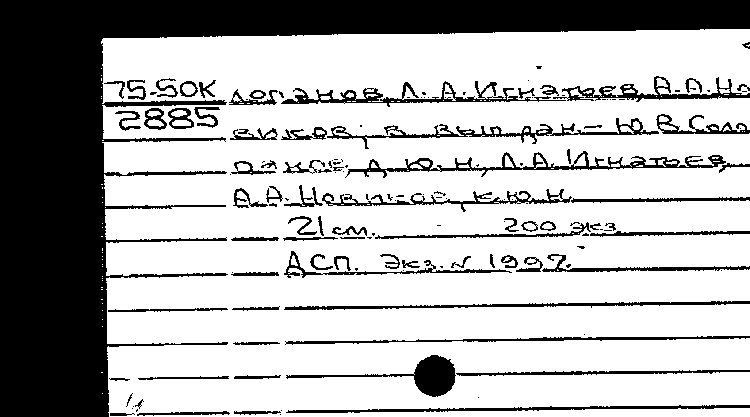 75-50К лопанов, Л. А. Игнатьев, А. А. Но
2885 виков; в вып. дан. – Ю. В. Соло
панов, д. ю. н., Л. А. Игнатьев,
А. А. Новиков, к. ю. н.
21 см. 200 экз.
ДСП. Экз. № 1997.